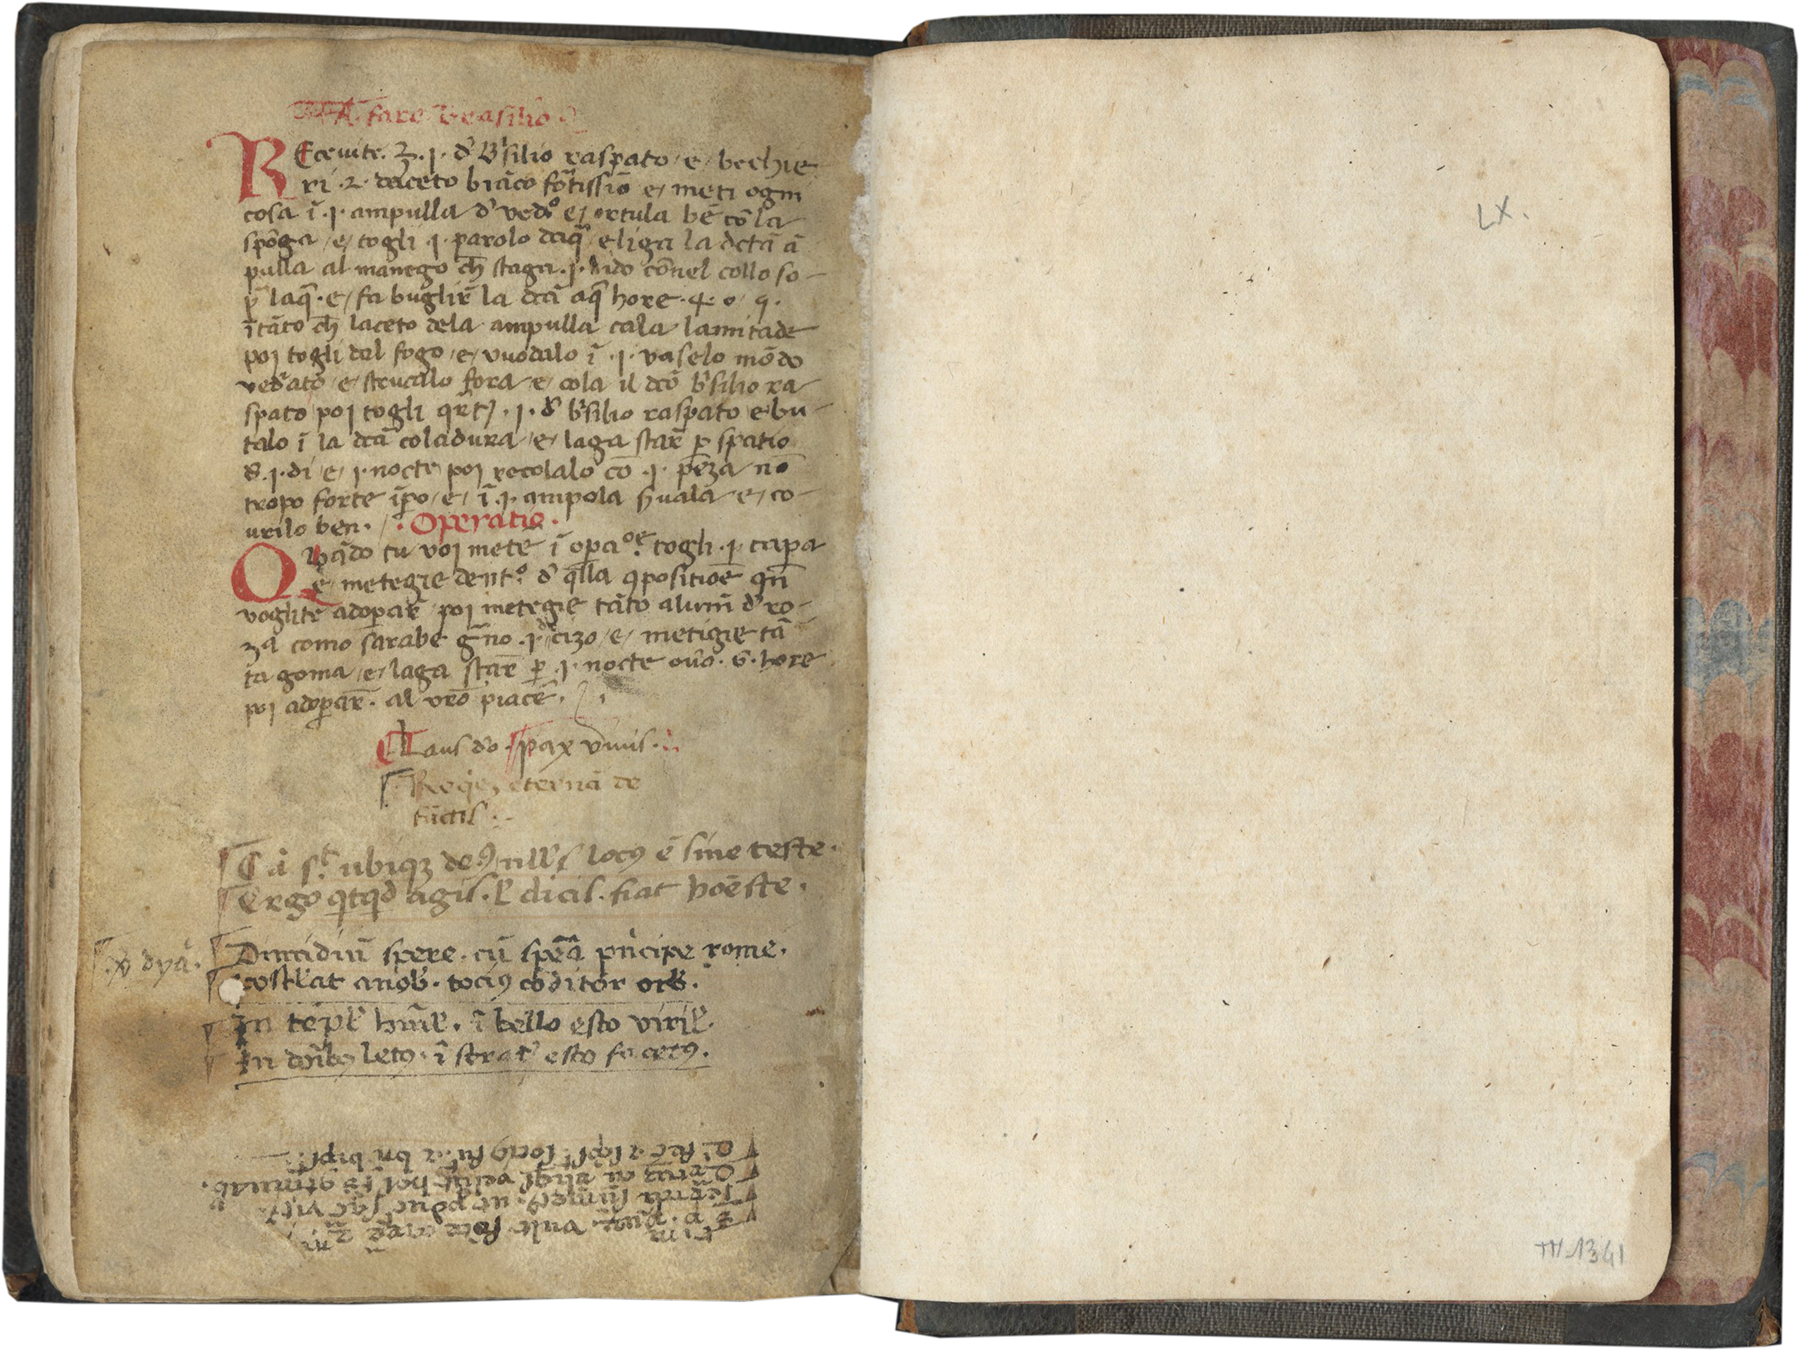 A fare brasilio
REceuite. ℥. j. d' b'silio raspato e bechie-
ri .2. daceto biāco fortissīo e meti ogni
cosa ī .j. ampulla d' vedº e ortula bē cō la
spōga e togli .j. parolo daq̄ e liga la dctā ā
pulla al manego ch̄ staga .j. dido cō nel collo so-
p̄ laq̄. e fa buglir̄ la dcā aq̄ hore .4. o .q.
ītāto ch̄ laceto dela ampulla cala lamitade
poj togli dal fogo e vuodalo ī .j. vaselo mōdo
vedˀato e strucalo fora e cola il dcō b'silio ra-
spato poj togli qr̄tj .j. d' b'silio raspato e bu-
talo ī la dcā coladura e laga star̄ p spatio
d'.j. di e j. nocte poj recolalo cō .j. peza nō
tropo forte īpo e ī .j. ampola s'uala e co-
urilo ben. Operatio.
Qvādo tu voj mete ī opa°e. togli .j. capa
e metegie dentº. d' q̄lla 9positioē qn̄
voglite adopar̄ poj metegie tāto alum̄ d' ro-
za como sarabe ḡno .j. d' cizo e metigie tā
ta goma e laga star̄ p .j. nocte ouˀo .6. hore
poj adopar̄. al vr̄o piacē.
Laus dˀo. pax viuis.
Reqˀez eternā de
fūctis.
Cū sᵗ ubiqz deˀ nullˀs locˀ ē sine teste.
Ergo qˀtqˀd agis. l' dicis. fiat hoēste.
.xv dyā. Dimidiū spere. cū sperā p̄ncipe rome.
postˀlat a nobˀ. tociˀ cōditor orbˀ.
In tēplˀ hūilˀ. ī bello esto virilˀ.
In domˀbˀ letˀ. ī stratˀ esto facetˀ.
LX.
III 1341